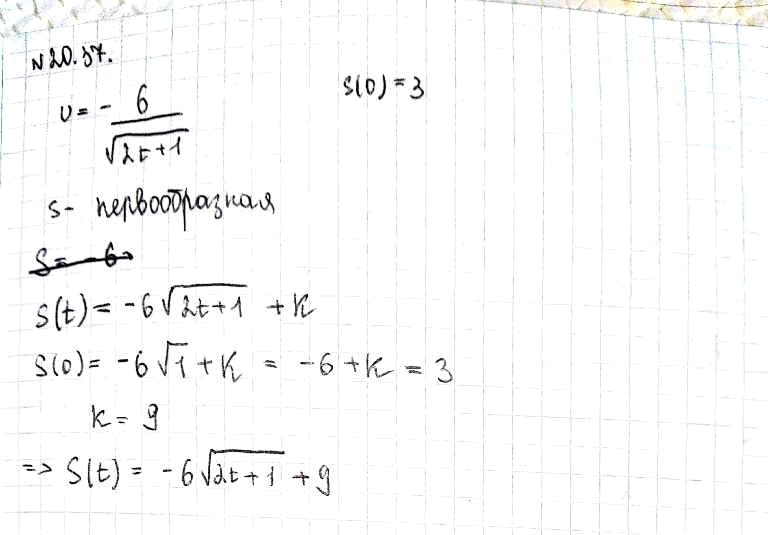 N 20.37.
s(0) = 3
υ = - 6/√(2t+1)
s - первообразная
S = -6
S(t) = -6√(2t+1) + K
S(0) = -6√1 + K = -6 + K = 3
K = 9
=> S(t) = -6√(2t+1) + 9